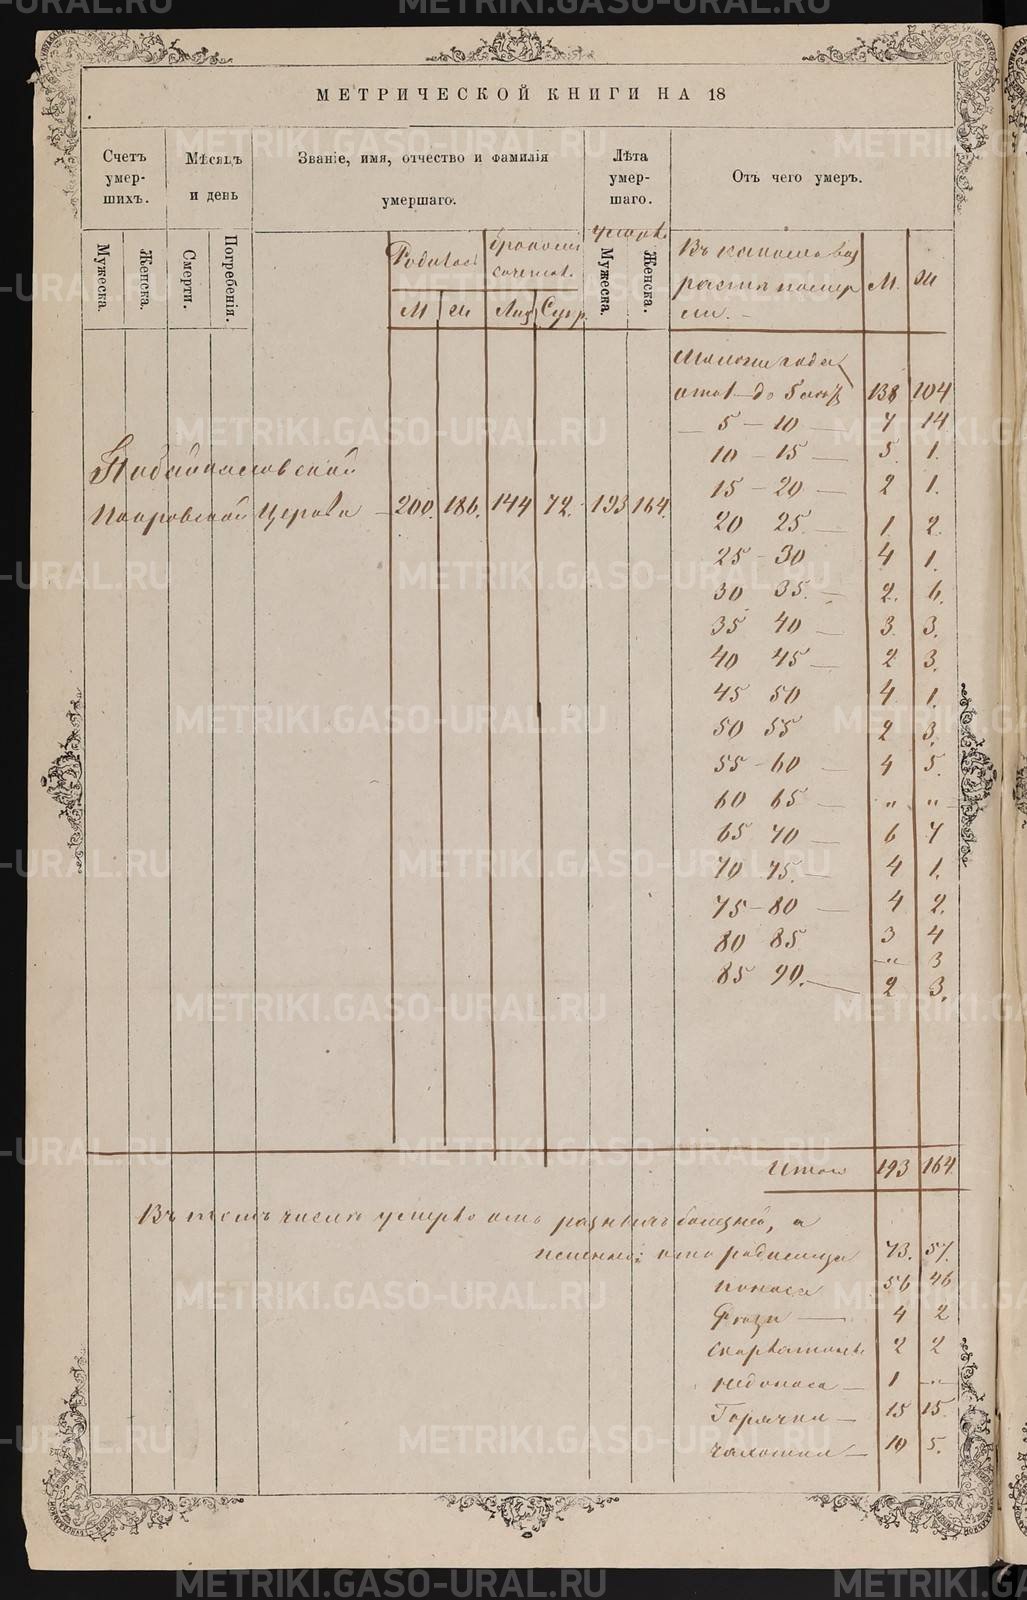 МЕТРИЧЕСКОЙ КНИГИ НА 18
Счетъ умер-шихъ.
Мѣсяцъ и день
Званіе, имя, отчество и фамилія умершаго.
Лѣта умер-шаго.
Отъ чего умеръ.
Мужеска.
Женска.
Смерти.
Погребенія.
Мужеска.
Женска.
М
Лиц
Супр.
Въ
М.
отъ 1 до 5 138 104
5 — 10 — 7 14
10 — 15 — 5. 1.
15 — 20 — 2 1.
20 25 — 1. 2.
25 — 30 4 1.
30 35. — 2. 6.
35 40 — 3. 3.
40 45 — 2 3.
45 50 4 1.
50 55 2 3.
55 — 60 — 4 5.
60 65 — " "
65 70 — 6 7
70 75. — 4 1.
75 — 80 — 4 2.
80 85 3 4
" 3
85 90. — 2 3.
Покровской Церкви 200. 186. 144 72. 193 164.
Итого 193 164.
Въ томъ числѣ умерло отъ разныхъ болезней, а
именно: отъ родимца 73. 57.
поноса 56 46
4 2
скарлатины 2 2
1 "
Горячки — 15 15.
10 5.
METRIKI.GASO-URAL.RU